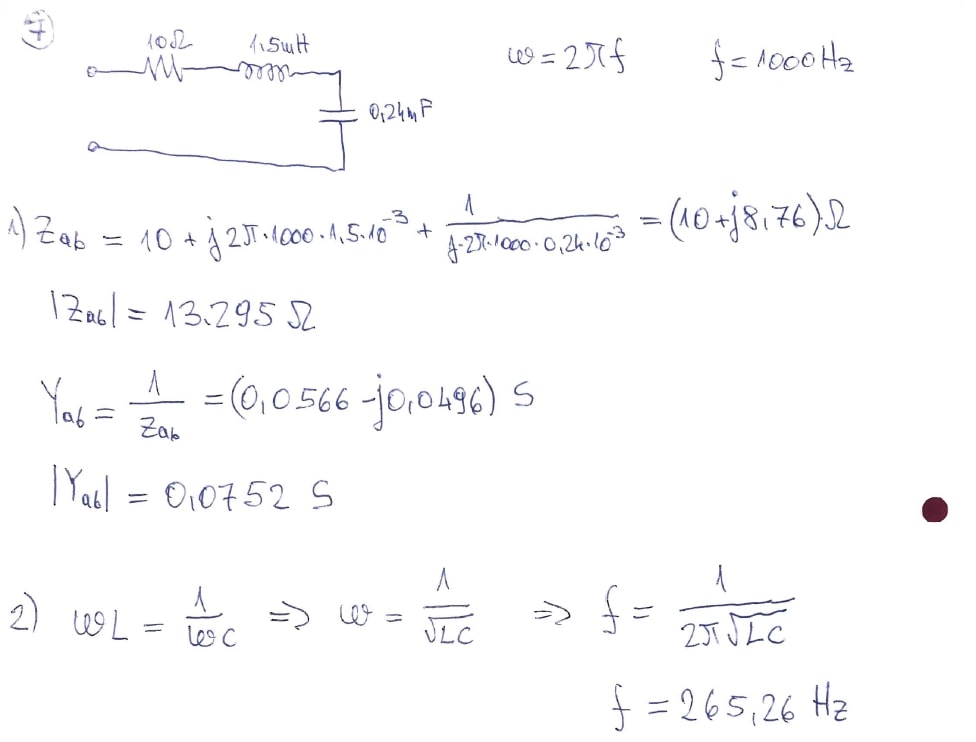 7
10Ω 1,5mH ω = 2πf f = 1000 Hz
0,24mF
1) Zab = 10 + j2π·1000·1,5·10⁻³ + 1/(j·2π·1000·0,24·10⁻³) = (10 + j8,76)·Ω
|Zab| = 13.295 Ω
Yab = 1/Zab = (0,0566 - j0,0496) S
|Yab| = 0,0752 S
2) ωL = 1/(ωC) => ω = 1/√LC => f = 1/(2π√LC)
f = 265,26 Hz